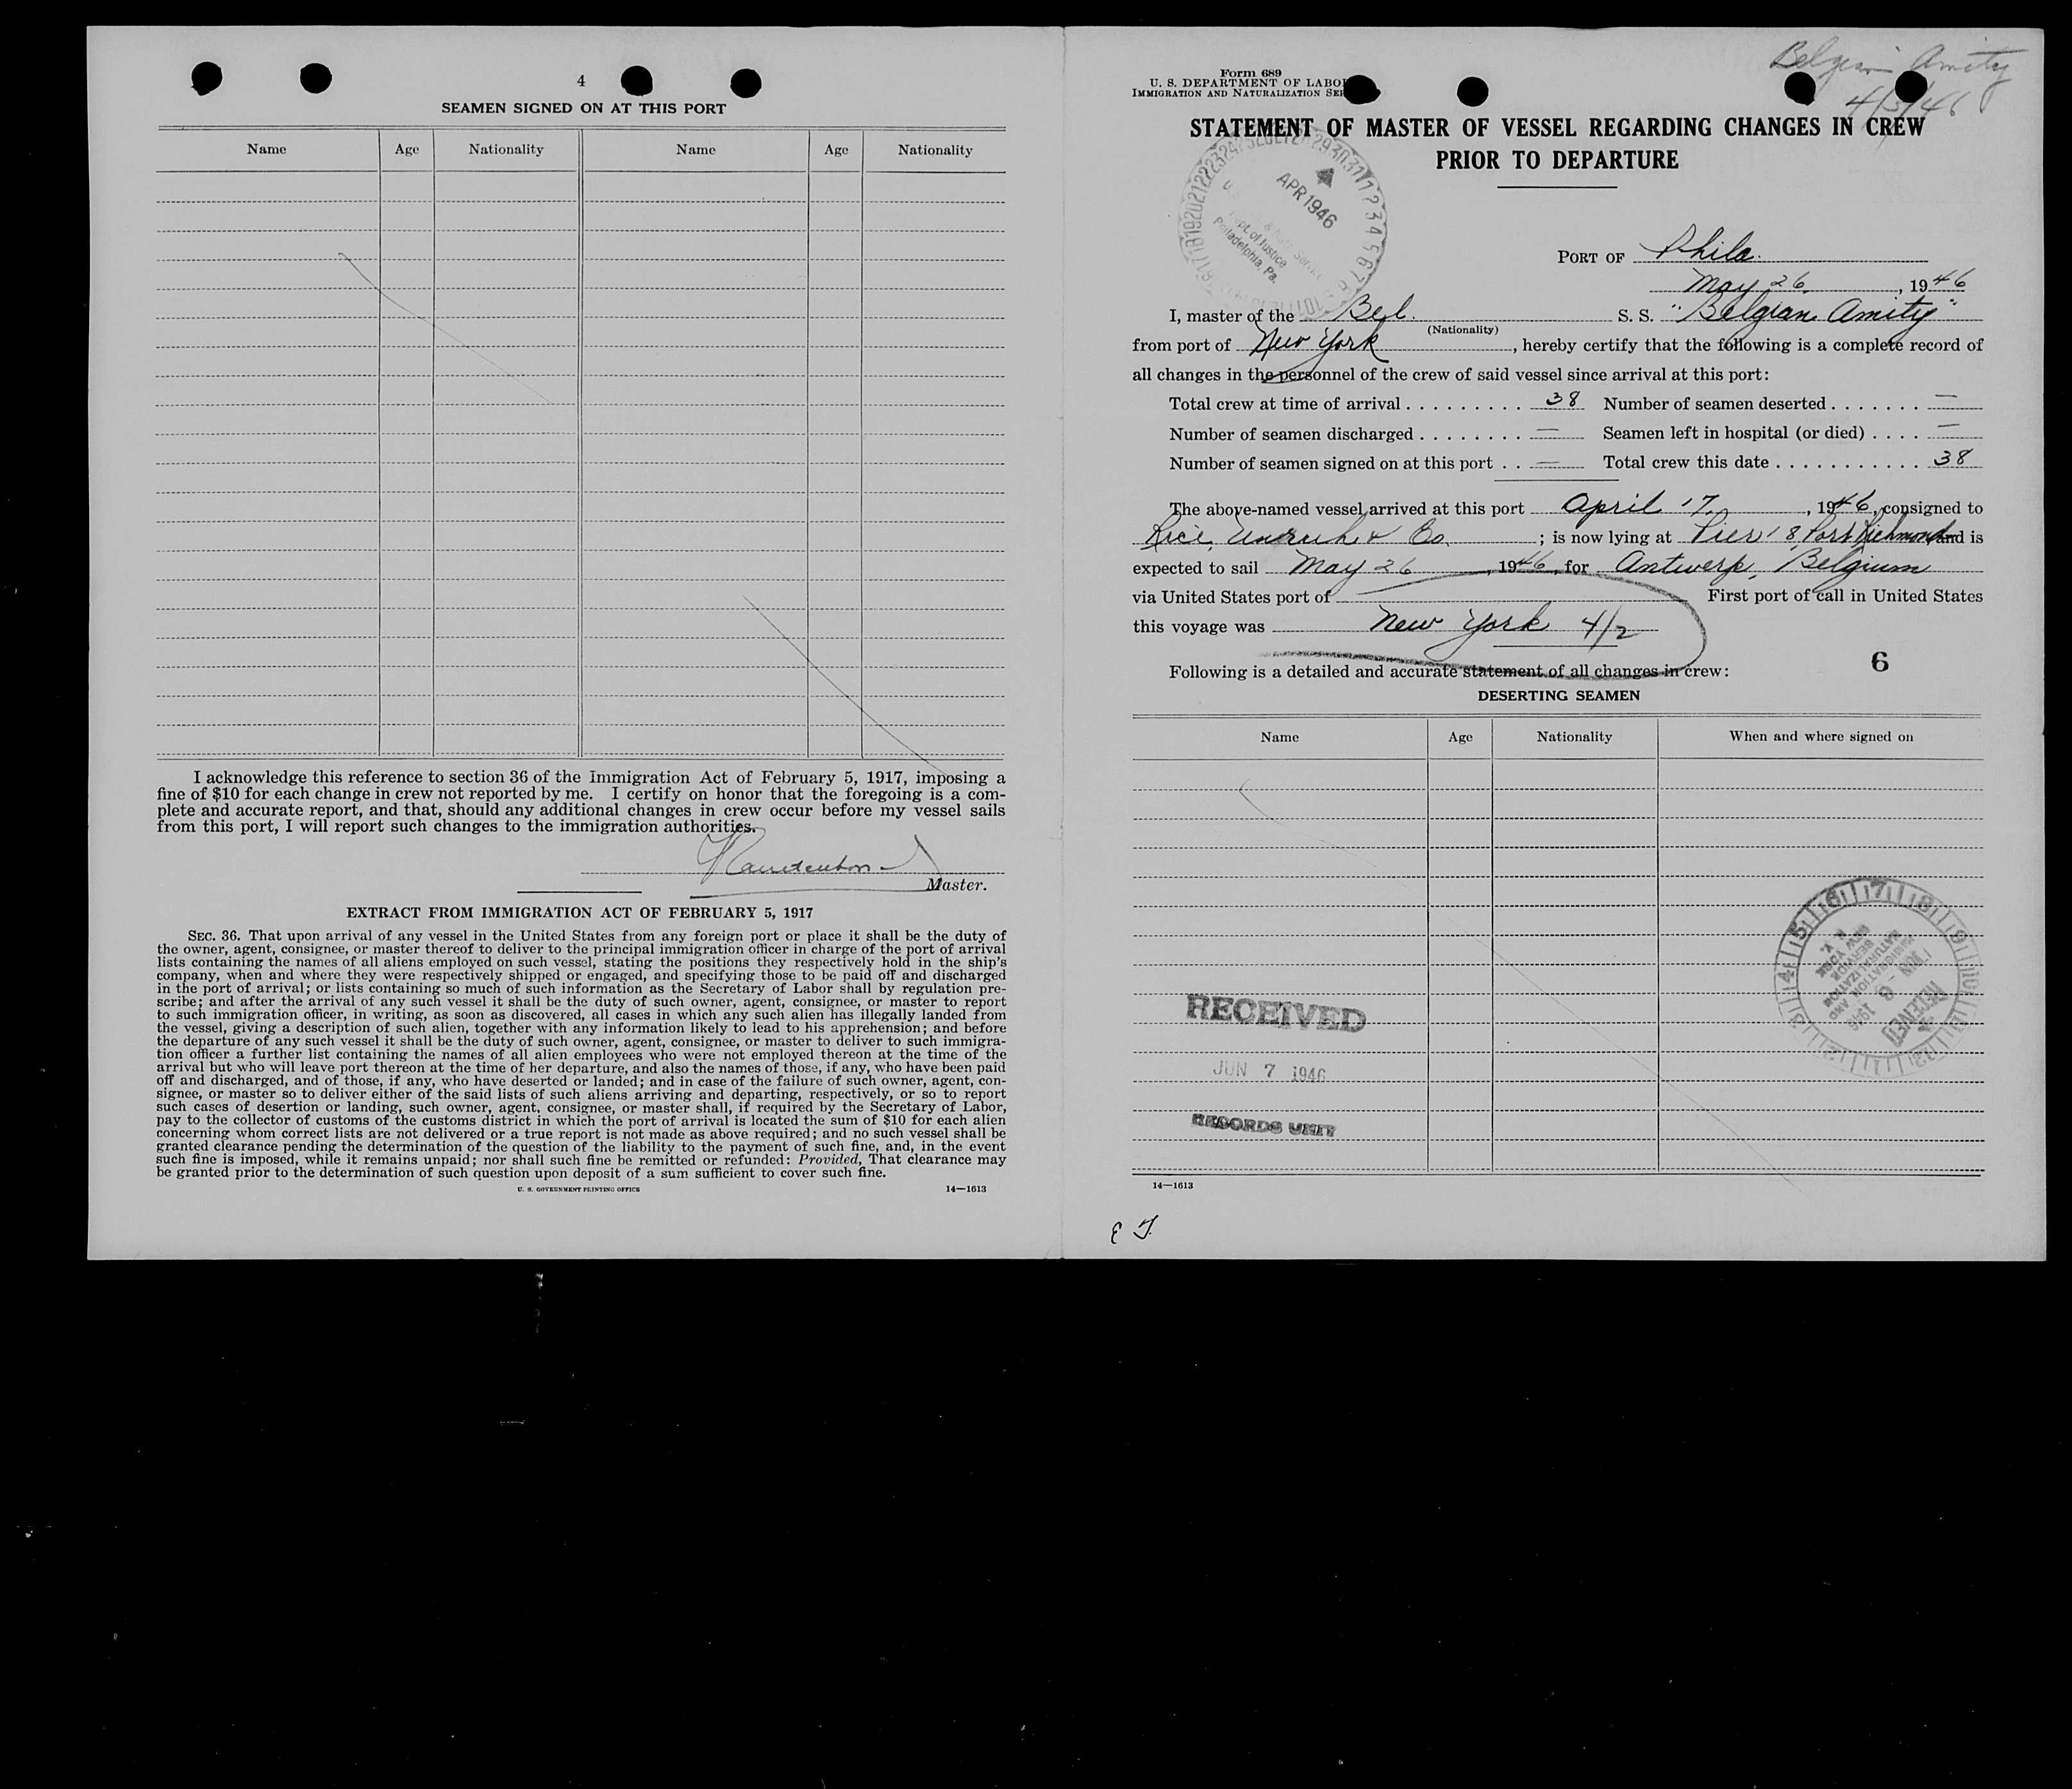 4
SEAMEN SIGNED ON AT THIS PORT
Name Age Nationality Name Age Nationality
I acknowledge this reference to section 36 of the Immigration Act of February 5, 1917, imposing a
fine of $10 for each change in crew not reported by me. I certify on honor that the foregoing is a com-
plete and accurate report, and that, should any additional changes in crew occur before my vessel sails
from this port, I will report such changes to the immigration authorities.
Master.
EXTRACT FROM IMMIGRATION ACT OF FEBRUARY 5, 1917
SEC. 36. That upon arrival of any vessel in the United States from any foreign port or place it shall be the duty of
the owner, agent, consignee, or master thereof to deliver to the principal immigration officer in charge of the port of arrival
lists containing the names of all aliens employed on such vessel, stating the positions they respectively hold in the ship's
company, when and where they were respectively shipped or engaged, and specifying those to be paid off and discharged
in the port of arrival; or lists containing so much of such information as the Secretary of Labor shall by regulation pre-
scribe; and after the arrival of any such vessel it shall be the duty of such owner, agent, consignee, or master to report
to such immigration officer, in writing, as soon as discovered, all cases in which any such alien has illegally landed from
the vessel, giving a description of such alien, together with any information likely to lead to his apprehension; and before
the departure of any such vessel it shall be the duty of such owner, agent, consignee, or master to deliver to such immigra-
tion officer a further list containing the names of all alien employees who were not employed thereon at the time of the
arrival but who will leave port thereon at the time of her departure, and also the names of those, if any, who have been paid
off and discharged, and of those, if any, who have deserted or landed; and in case of the failure of such owner, agent, con-
signee, or master so to deliver either of the said lists of such aliens arriving and departing, respectively, or so to report
such cases of desertion or landing, such owner, agent, consignee, or master shall, if required by the Secretary of Labor,
pay to the collector of customs of the customs district in which the port of arrival is located the sum of $10 for each alien
concerning whom correct lists are not delivered or a true report is not made as above required; and no such vessel shall be
granted clearance pending the determination of the question of the liability to the payment of such fine, and, in the event
such fine is imposed, while it remains unpaid; nor shall such fine be remitted or refunded: Provided, That clearance may
be granted prior to the determination of such question upon deposit of a sum sufficient to cover such fine.
U. S. GOVERNMENT PRINTING OFFICE 14—1613
Belgian Amity
4/3/46
Form 689
U. S. DEPARTMENT OF LABO
IMMIGRATION AND NATURALIZATION SE
STATEMENT OF MASTER OF VESSEL REGARDING CHANGES IN CREW
PRIOR TO DEPARTURE
APR 1946
Dept. of Justice
Philadelphia, Pa.
PORT OF Phila.
May 26, 1946
I, master of the Bel. S. S. "Belgian Amity"
(Nationality)
from port of New York, hereby certify that the following is a complete record of
all changes in the personnel of the crew of said vessel since arrival at this port:
Total crew at time of arrival 38 Number of seamen deserted —
Number of seamen discharged — Seamen left in hospital (or died) —
Number of seamen signed on at this port — Total crew this date 38
The above-named vessel arrived at this port April 17, 1946, consigned to
Rice, Unruh & Co. ; is now lying at Pier 18, Port Richmond and is
expected to sail May 26, 1946, for Antwerp, Belgium
via United States port of First port of call in United States
this voyage was New York 4/2
Following is a detailed and accurate statement of all changes in crew: 6
DESERTING SEAMEN
Name Age Nationality When and where signed on
RECEIVED
JUN 7 1946
RECORDS UNIT
RECEIVED
JUN 6 1946
IMMIGRATION AND
NATURALIZATION
SERVICE
NEW YORK
N. Y.
14—1613
E J.